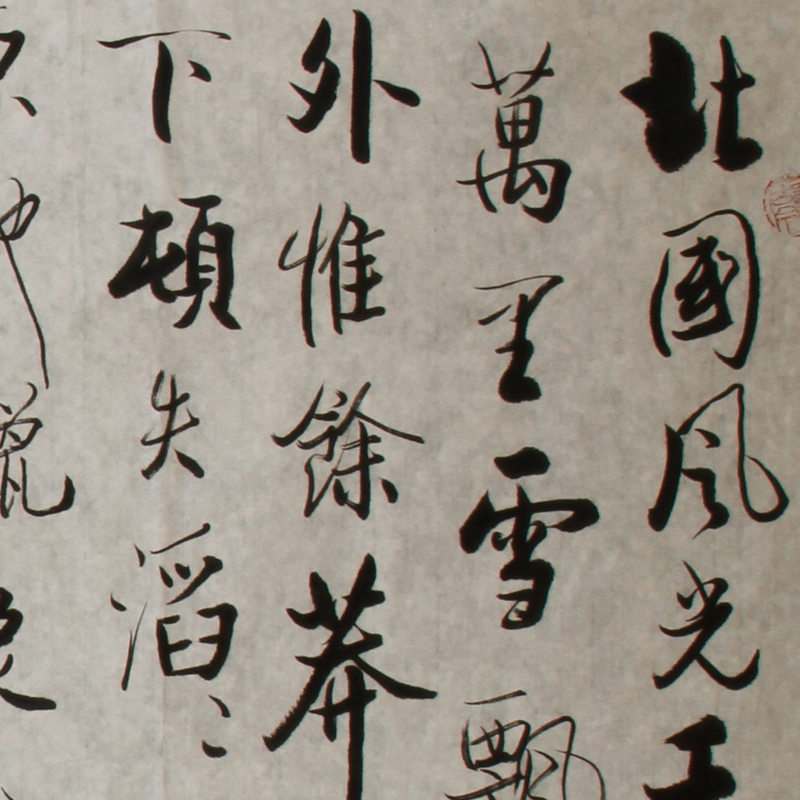 北國風光
萬里雪飄
外惟餘莽
下頓失滔〻